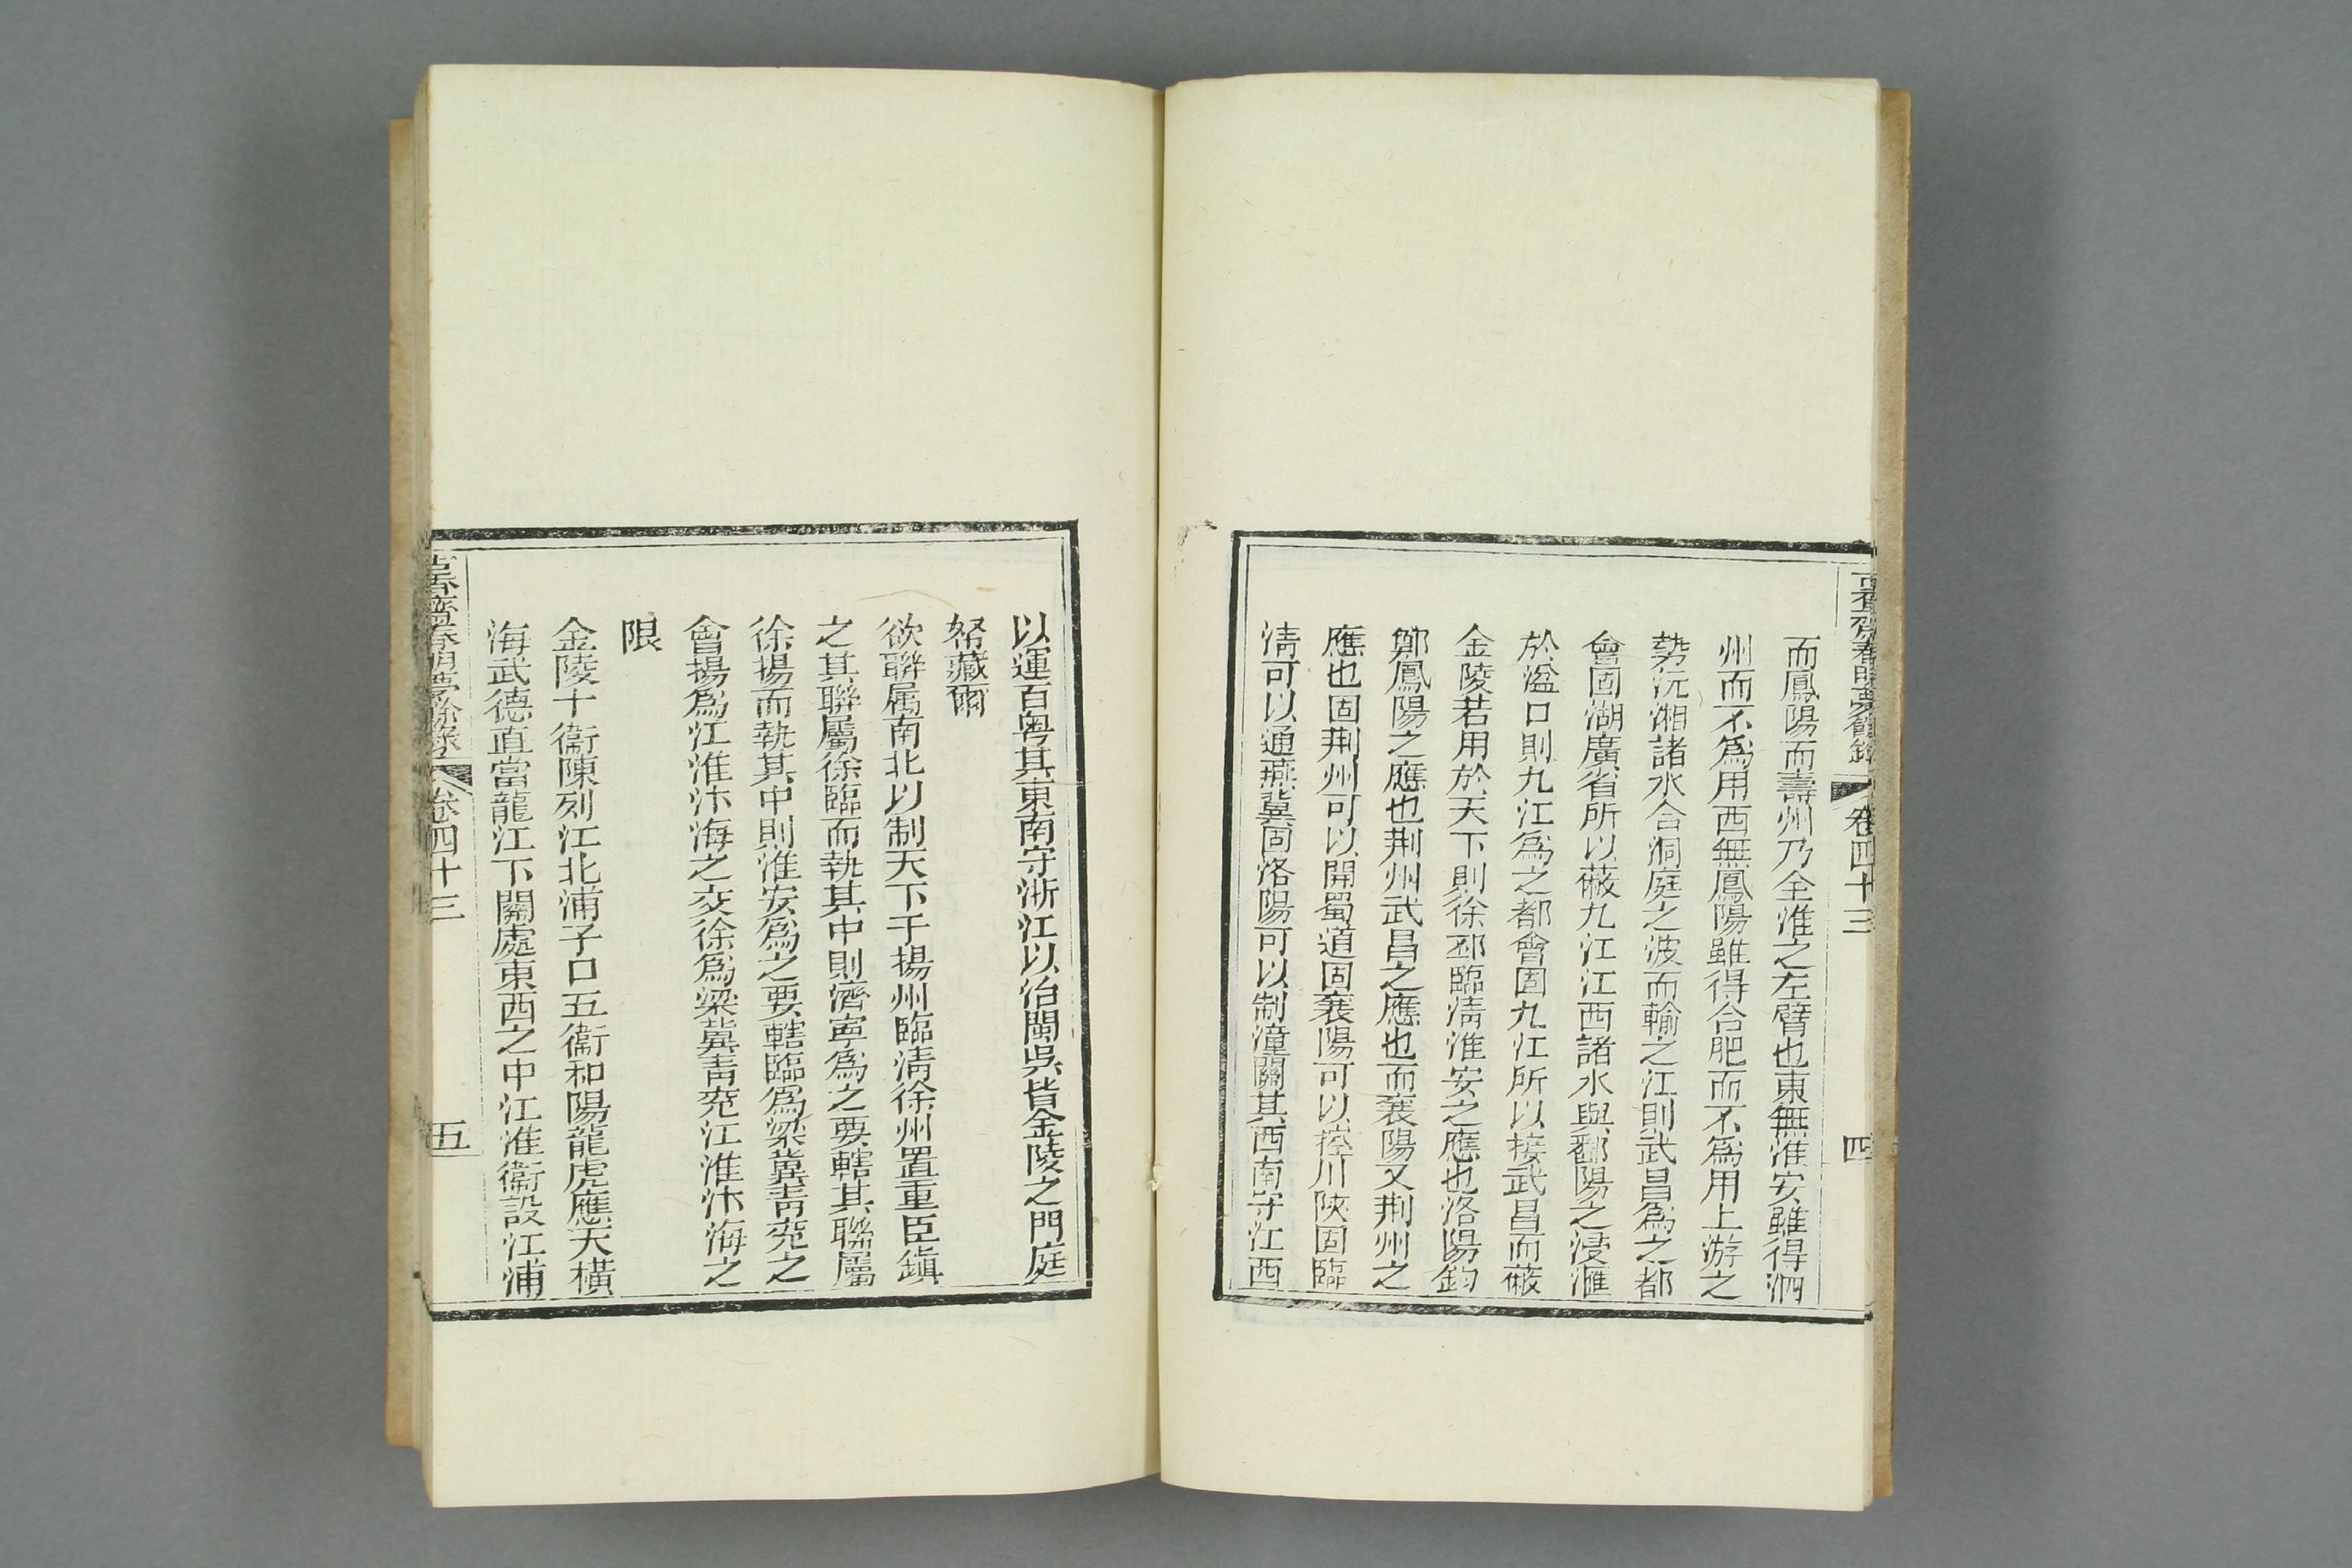 而鳳陽而壽州乃全淮之左臂也東無淮安雖得泗
州而不爲用西無鳳陽雖得合肥而不爲用上游之
勢沅湘諸水合洞庭之波而輸之江則武昌爲之都
會固湖廣省所以蔽九江江西諸水與鄱陽之浸滙
於湓口則九江爲之都會固九江所以接武昌而蔽
金陵若用於天下則徐邳臨淸淮安之應也洛陽鈞
鄭鳳陽之應也荆州武昌之應也而襄陽又荆州之
應也固荆州可以開蜀道固襄陽可以控川陝固臨
淸可以通燕冀固洛陽可以制潼關其西南守江西
卷四十三
四
以運百粤其東南守浙江以治閩吳皆金陵之門庭
帑藏爾
欲聯属南北以制天下于揚州臨淸徐州置重臣鎭
之其聯屬徐臨而執其中則濟寧爲之要轄其聯屬
徐揚而執其中則淮安爲之要轄臨爲梁冀靑兖之
會揚爲江淮汴海之交徐爲梁冀靑兖江淮汴海之
限
金陵十衞陳列江北浦子口五衞和陽龍虎應天橫
海武德直當龍江下關處東西之中江淮衞設江浦
古香齋春明夢餘錄
卷四十三
五